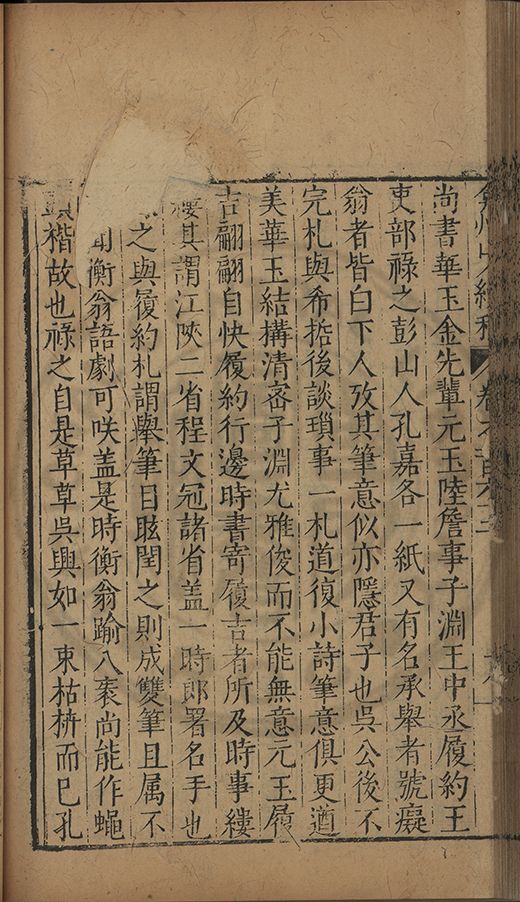 弇州山人續稿 卷之
尚書華玉金先輩元玉陸詹事子淵王中丞履約王
吏部祿之彭山人孔嘉各一紙又有名承舉者號癡
翁者皆白下人攷其筆意似亦隱君子也吳公後不
完札與希哲後談瑣事一札道復小詩筆意俱更遒
美華玉結構清密子淵尤雅俊而不能無意元玉履
吉翩翩自快履約行邊時書寄履吉者所及時事縷
縷其謂江陜二省程文冠諸省盖一時郎署名手也
之與履約札謂舉筆目眩閏之則成雙筆且属不
聞衡翁語劇可咲盖是時衡翁踰八袠尚能作蝇
頭楷故也祿之自是草草吳興如一束枯枿而已孔